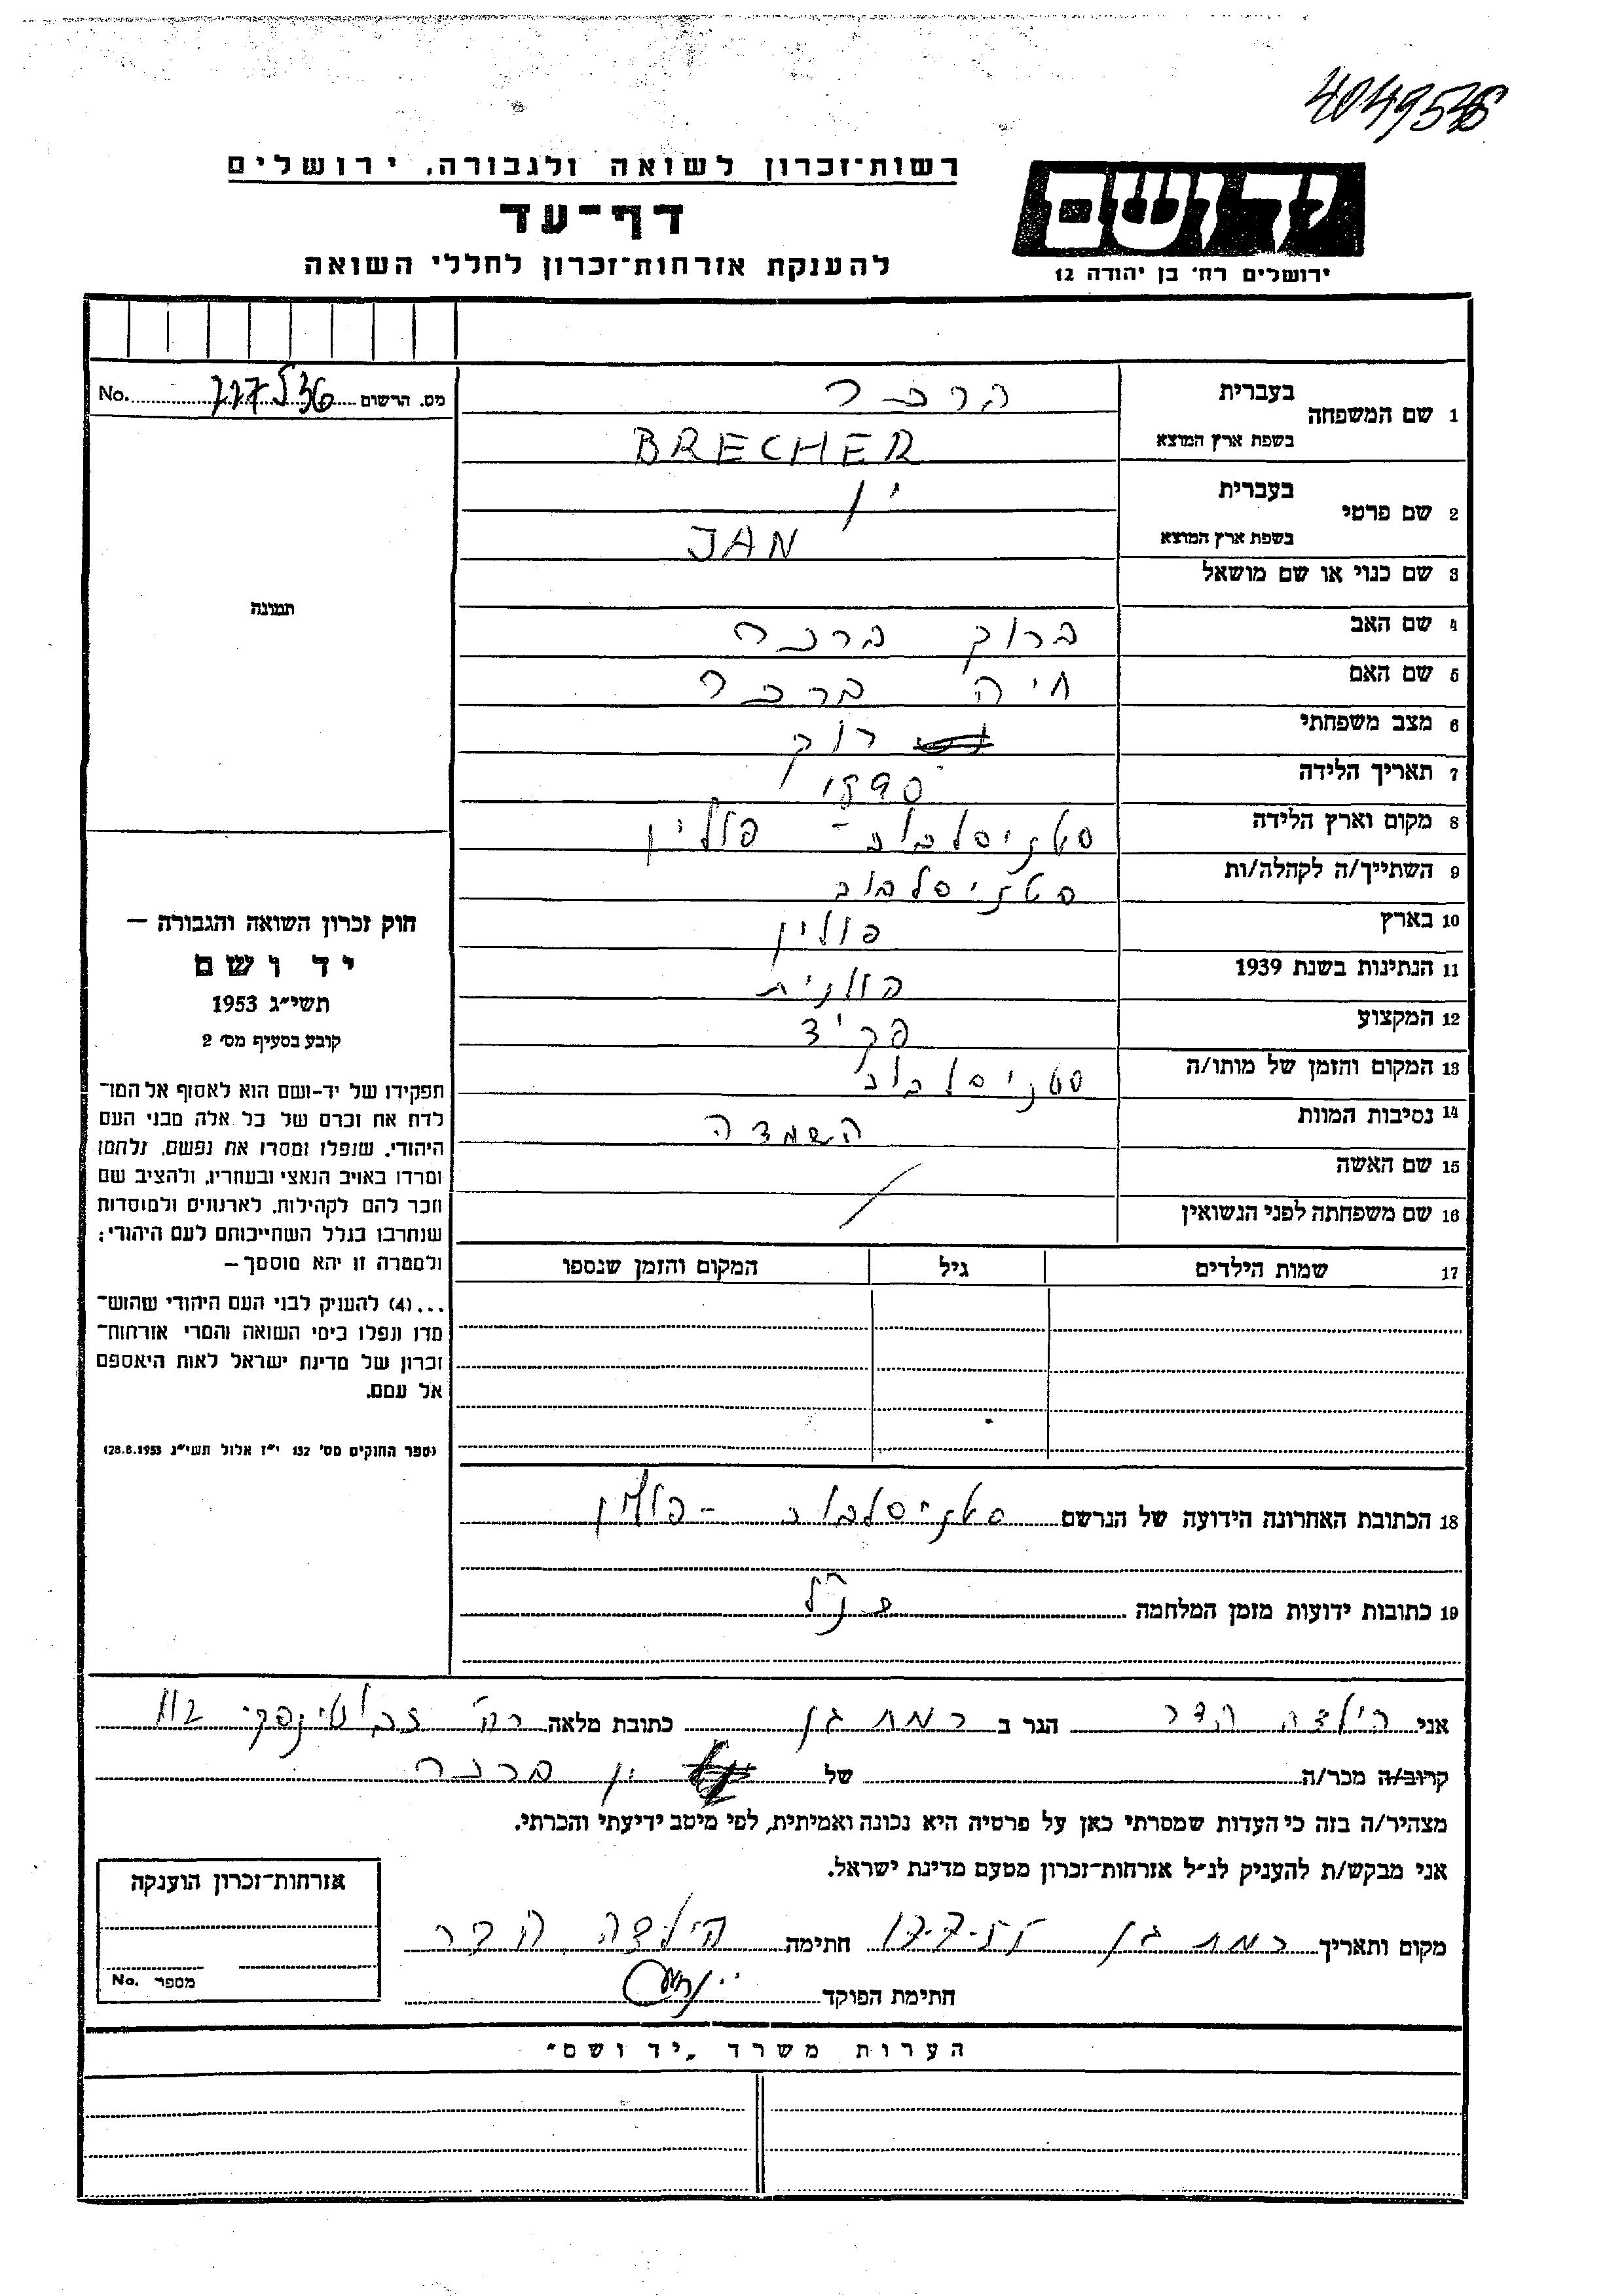 4049548
רשות־זכרון לשואה ולגבורה, ירושלים
יד ושם
דף־עד
להענקת אזרחות־זכרון לחללי השואה
ירושלים רח' בן יהודה 12
מס. הרשום No.
1 שם המשפחה בעברית ברכר
בשפת ארץ המוצא BRECHER
2 שם פרטי בעברית ין
בשפת ארץ המוצא JAN
3 שם כנוי או שם מושאל
תמונה
4 שם האב ברוך ברכר
5 שם האם חיה ברכר
6 מצב משפחתי רוק
7 תאריך הלידה 1890
8 מקום וארץ הלידה סטניסלבוב – פולין
9 השתייך/ה לקהלה/ות סטניסלבוב
10 בארץ פולין
11 הנתינות בשנת 1939 פולנית
12 המקצוע פקיד
13 המקום והזמן של מותו/ה סטניסלבוב
14 נסיבות המוות השמדה
15 שם האשה
16 שם משפחתה לפני הנשואין
17 שמות הילדים גיל המקום והזמן שנספו
חוק זכרון השואה והגבורה —
יד ושם
תשי״ג 1953
קובע בסעיף מס' 2
תפקידו של יד-ושם הוא לאסוף אל המו־
לדת את זכרם של כל אלה מבני העם
היהודי, שנפלו ומסרו את נפשם, נלחמו
ומרדו באויב הנאצי ובעוזריו, ולהציב שם
וזכר להם לקהילות, לארגונים ולמוסדות
שנחרבו בגלל השתייכותם לעם היהודי;
ולמטרה זו יהא מוסמך —
...(4) להעניק לבני העם היהודי שהוש־
מדו ונפלו בימי השואה והמרי אזרחות־
זכרון של מדינת ישראל לאות היאספם
אל עמם.
(ספר החוקים מס' 132 י״ז אלול תשי״ג 28.8.1953)
18 הכתובת האחרונה הידועה של הנרשם סטניסלבוב – פולין
19 כתובות ידועות מזמן המלחמה כנ״ל
אני הילדה הדר הגר ב רמת גן כתובת מלאה רח' ז'בוטינסקי 112
קרוב/ה מכר/ה של ין ברכר
מצהיר/ה בזה כי העדות שמסרתי כאן על פרטיה היא נכונה ואמיתית, לפי מיטב ידיעתי והכרתי.
אני מבקש/ת להעניק לנ״ל אזרחות־זכרון מטעם מדינת ישראל.
מקום ותאריך רמת גן 17-7-55 חתימה הילדה הדר
חתימת הפוקד
אזרחות־זכרון הוענקה
מספר No.
הערות משרד „יד ושם״